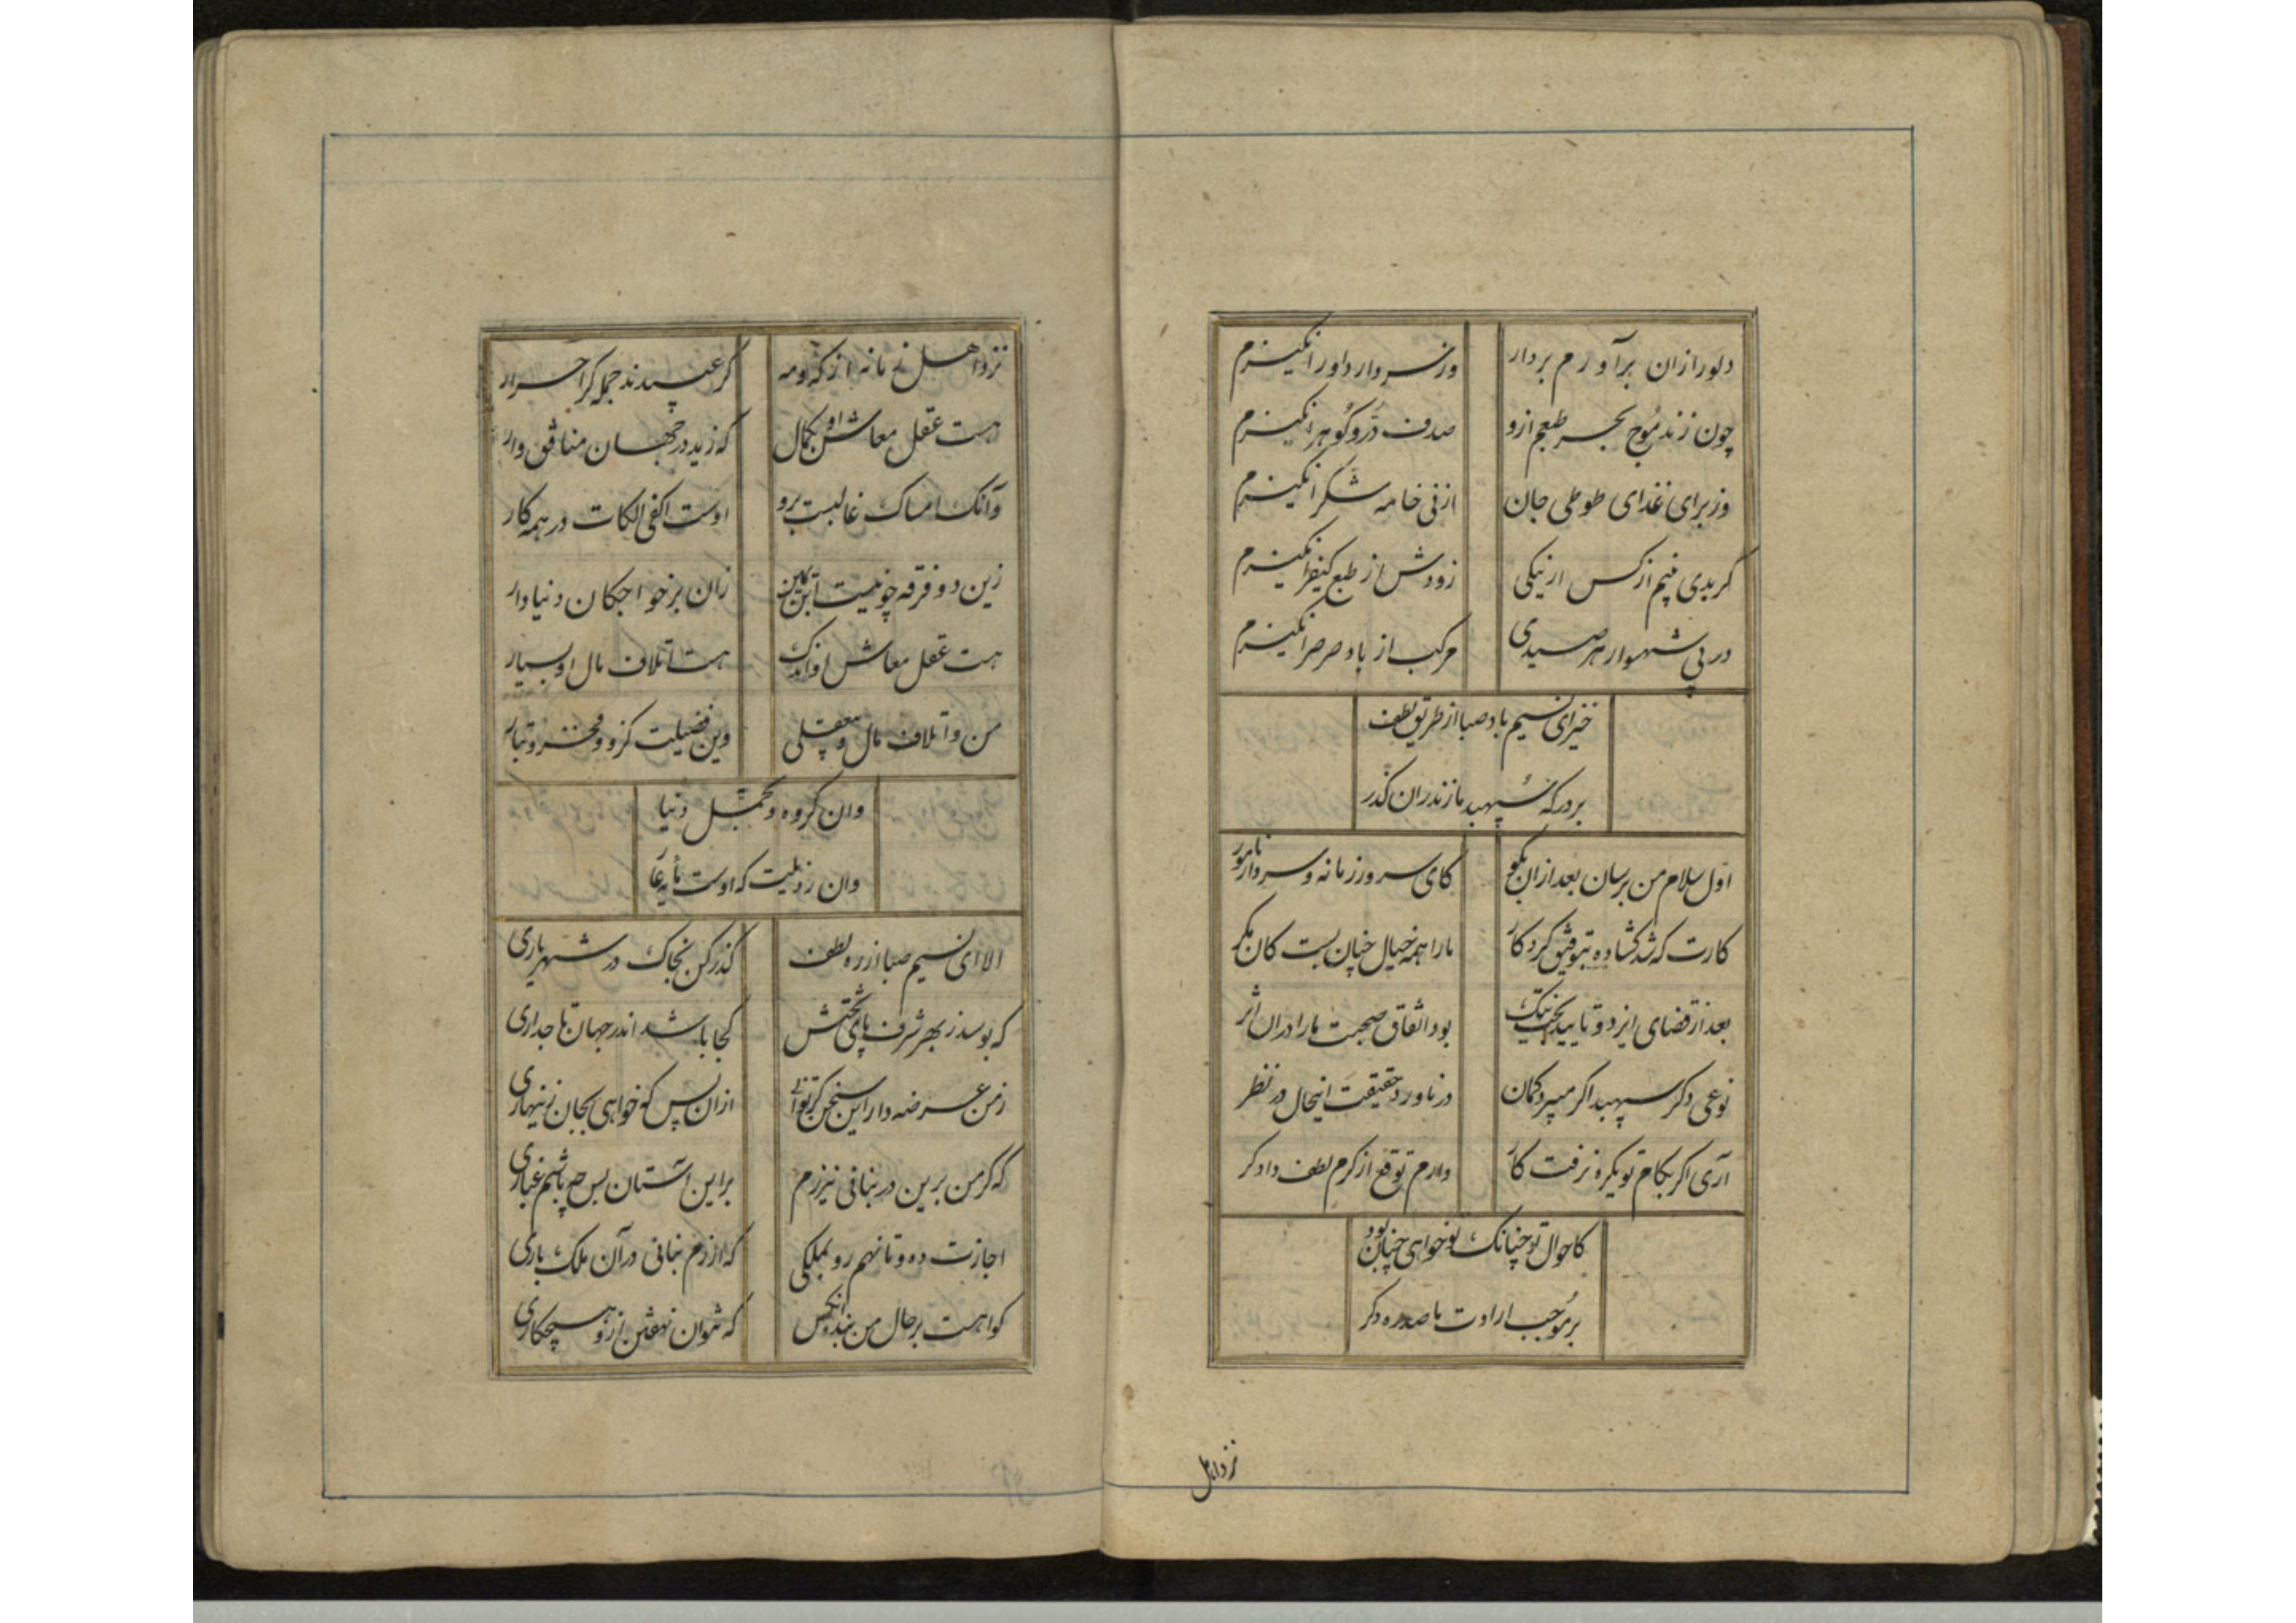 دلور ازان برآورم بردار
وز سر دار داور انگیزم
چون زند موج بحر طبعم ازو
صدف در و گوهر انگیزم
وز برای غذای طوطی جان
از نی خامه شکر انگیزم
کر بدی بینم از کس ار نیکی
زودش از طبع کیفر انگیزم
در پی شهسوار هر صیدی
مرکب از باد صرصر انگیزم
خیز ای نسیم باد صبا از طریق لطف
بر درکه سپهبد مازندران گذر
اول سلام من برسان بعد ازان بکو
کای سرور زمانه و سردار نامور
کارت که شد کشاده بتوفیق کردکار
ما را همه خیال چنان بست کان مکر
بعد از قضای ایزد و تایید بخت نیک
بود اتفاق صحبت ما را دران اثر
نوعی دکر سپهبد اکر میبرد کمان
درناورد حقیقت اینحال در نظر
آری اکر بکام تو یکره نرفت کار
دارم توقع از کرم لطف دادکر
کاحوال تو چنانک تو خواهی چنان بود
بر موجب ارادت ما صد ره دکر
نزد اهل
نزد اهل زمانه از که و مه
کر عبیدند جمله کر احرار
هست عقل معاش او بکمال
که زید در جهان منافق وار
وآنک امساک غالبست برو
اوست اکفی الکفات در همه کار
زین دو فرقه چو نیست ابن یمین
زان بر خواجکان دنیادار
هست عقل معاش او اندک
هست اتلاف مال او بسیار
من و اتلاف مال و بی عقلی
وین فضیلت کزو و فخر و تبار
وان کروه و تجمل دنیا
وان رذیلت که اوست مایه عار
الا ای نسیم صبا از ره لطف
کذر کن بخاک در شهریاری
که بوسد ز بهر شرف پای تختش
کجا باشد اندر جهان تاجداری
ز من عرضه دار این سخن کر توانی
ازان پس که خواهی بجان زینهاری
که کر من برین در بنانی نیرزم
بر این آستان بس چه باشم غباری
اجازت ده و تا نهم رو بملکی
که ارزم بنانی در آن ملک باری
کواهست بر حال من بنده آنکس
که نتوان نهفتن ازو هیچ کاری